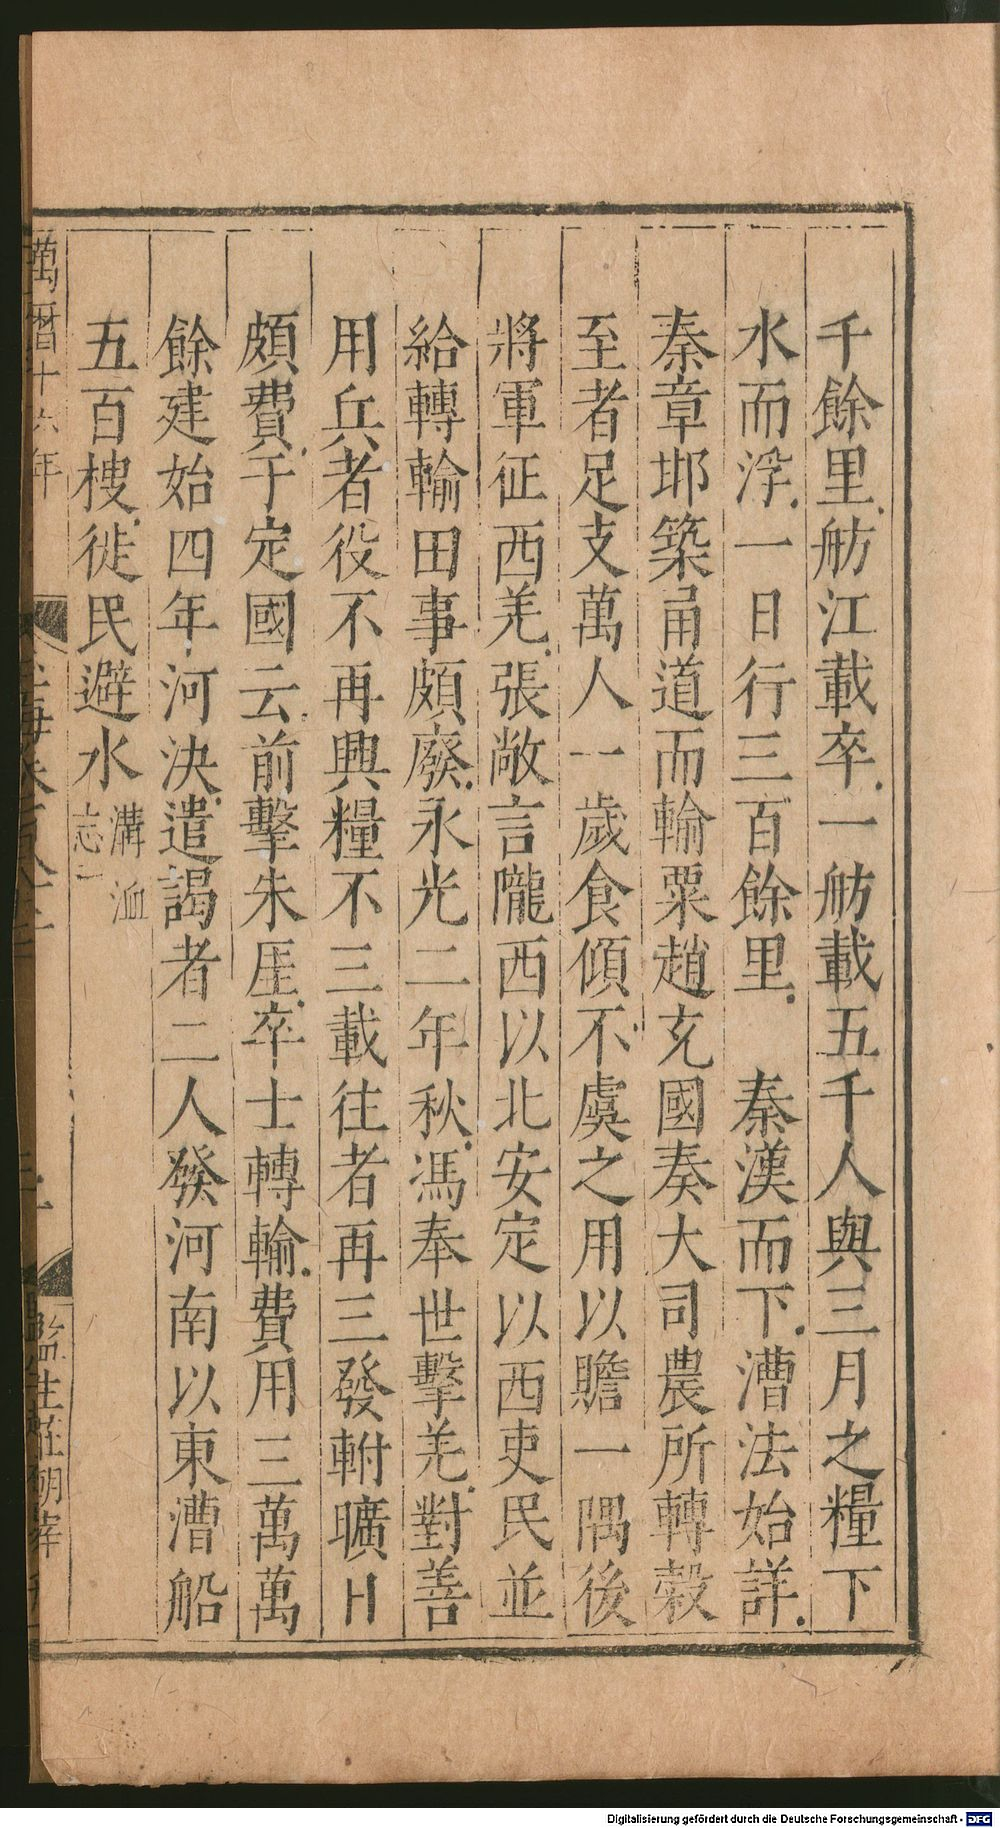 千餘里舫江載卒一舫載五千人與三月之糧下
水而浮一日行三百餘里 秦漢而下漕法始詳
秦章邯築甬道而輸粟趙充國奏大司農所轉穀
至者足支萬人一歲食傾不虞之用以贍一隅後
將軍征西羌張敞言隴西以北安定以西吏民並
給轉輸田事頗廢永光二年秋馮奉世擊羌對善
用兵者役不再興糧不三載往者再三發軵曠日
頗費于定國云前擊朱厓卒士轉輸費用三萬萬
餘建始四年河決遣謁者二人發河南以東漕船
五百樓徙民避水溝洫
志
萬曆十六年
監生
Digitalisierung gefördert durch die Deutsche Forschungsgemeinschaft - DFG